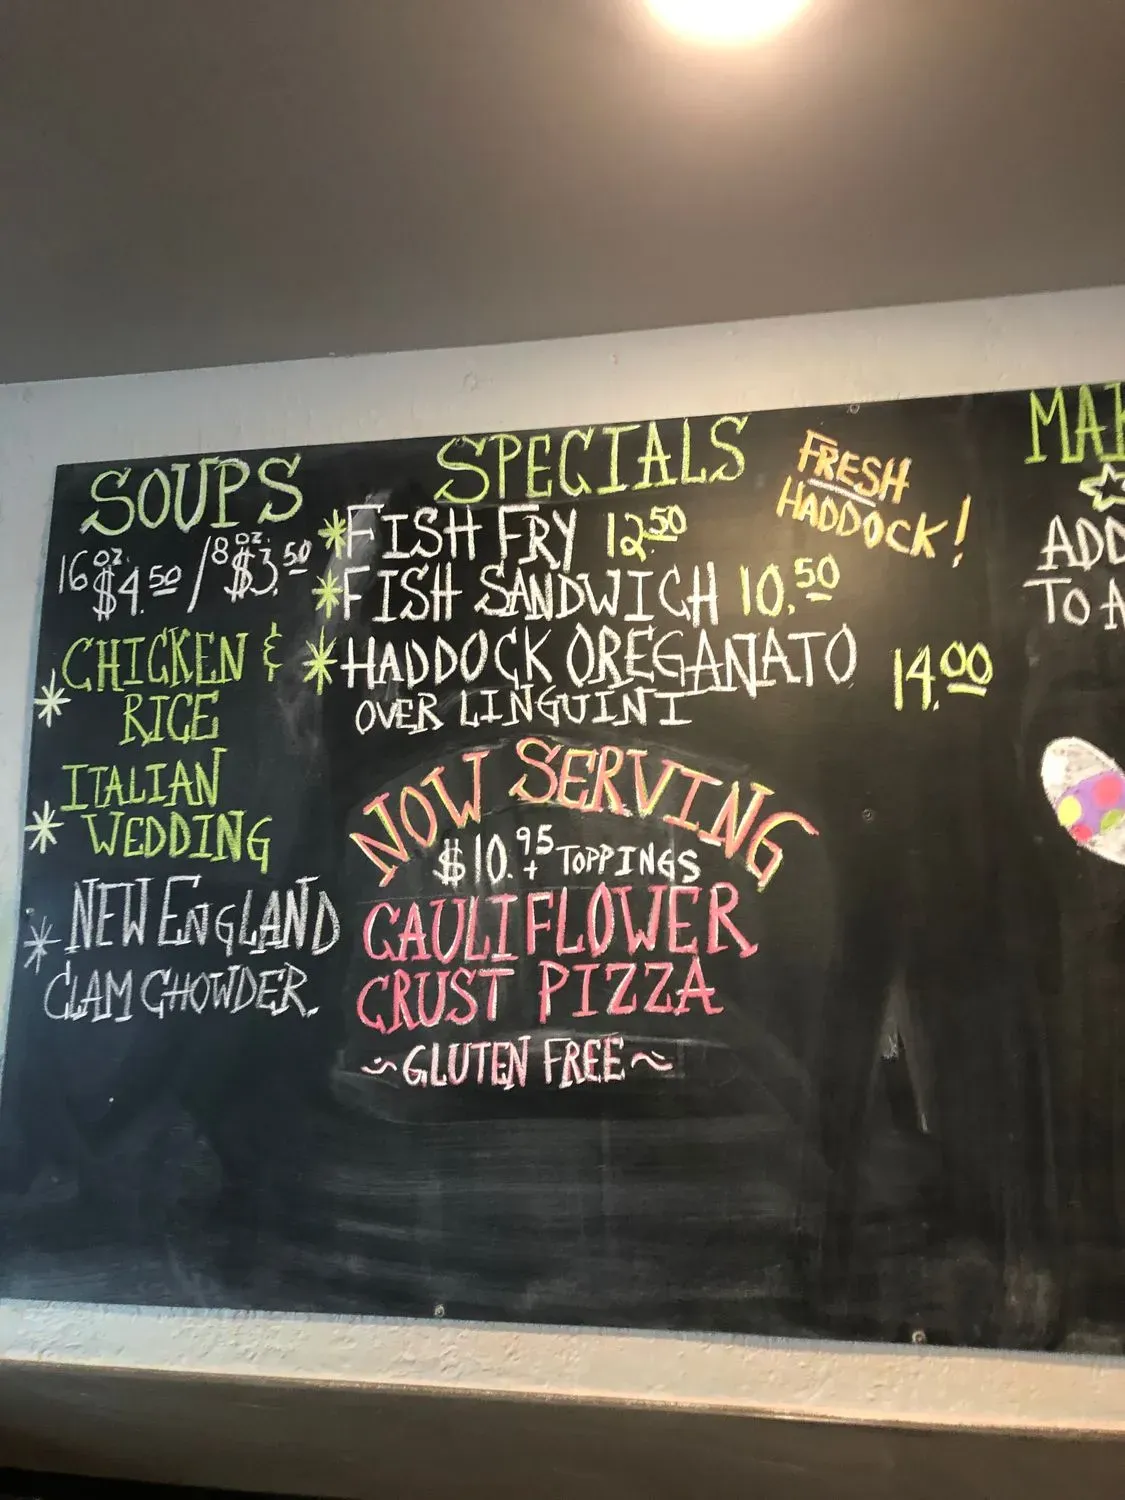 SOUPS
16oz. $4.50 / 8oz. $3.50
* CHICKEN &
RICE
* ITALIAN
WEDDING
* NEW ENGLAND
CLAM CHOWDER.
SPECIALS
FRESH
HADDOCK!
* FISH FRY 12.50
* FISH SANDWICH 10.50
* HADDOCK OREGANATO 14.00
OVER LINGUINI
NOW SERVING
$10.95 + TOPPINGS
CAULIFLOWER
CRUST PIZZA
~GLUTEN FREE~
ADD
TO A